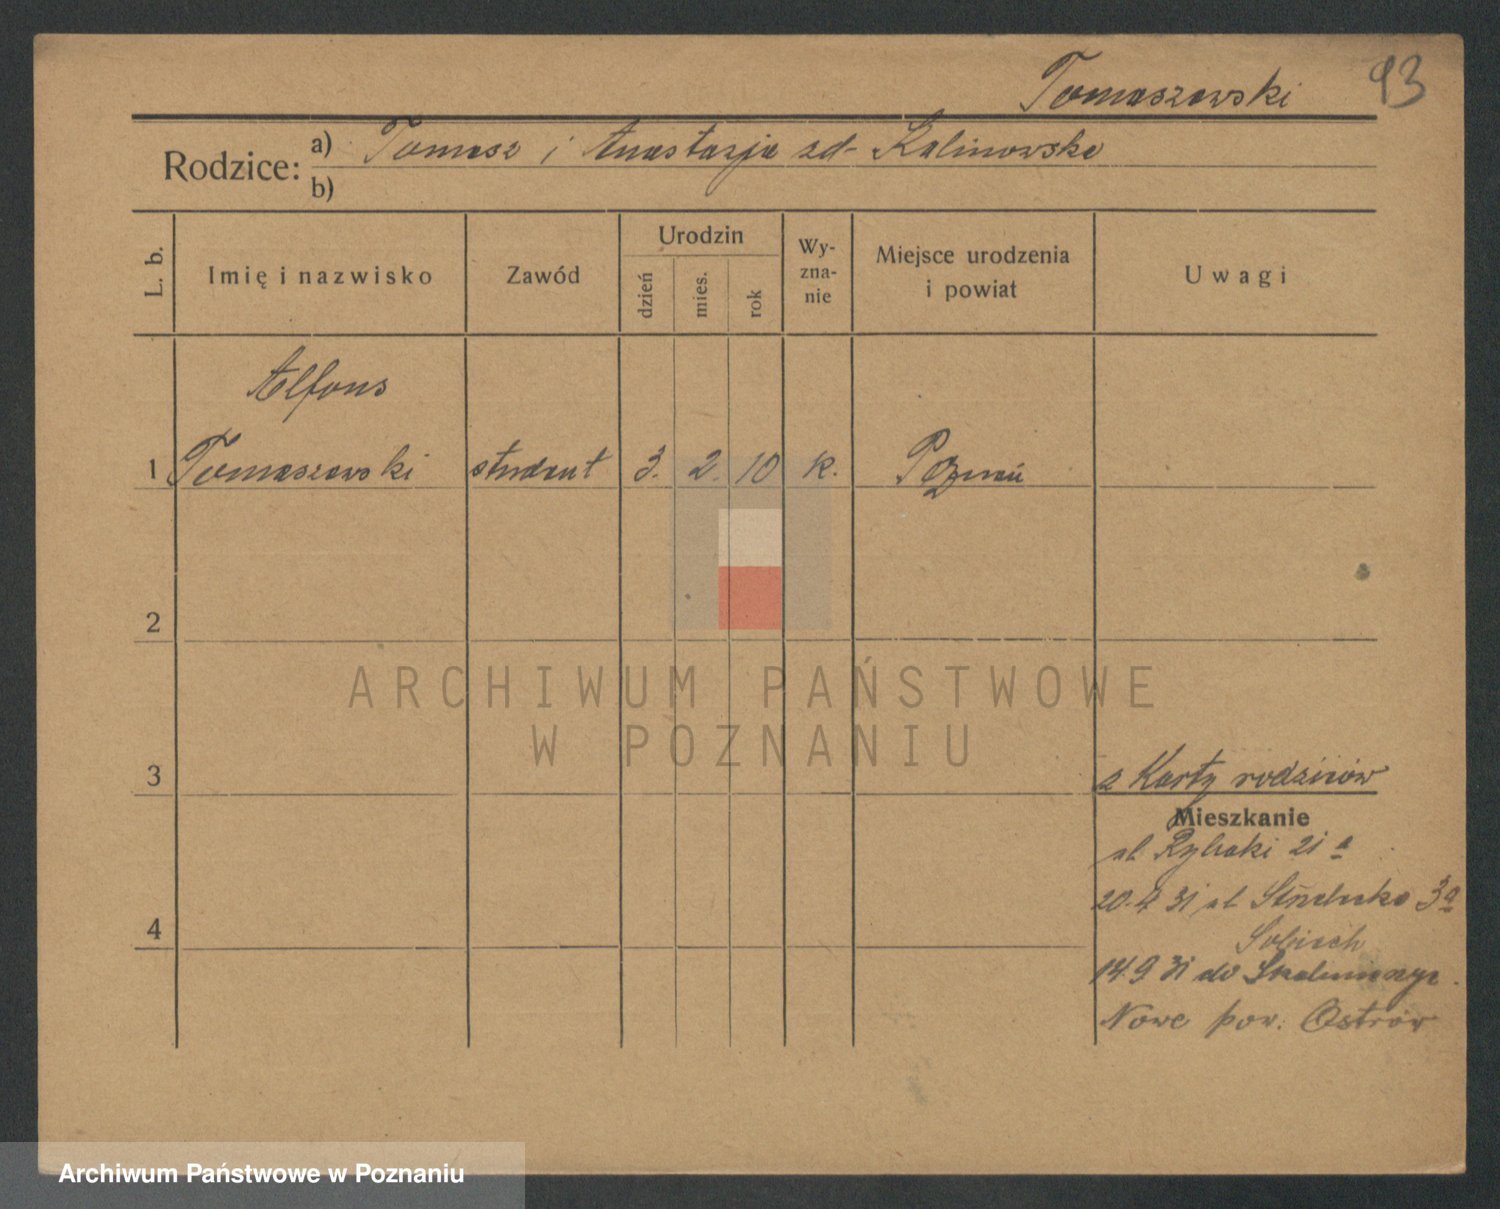 Tomaszewski 93
Rodzice: a) Tomasz i Anastazja zd- Kalinowska
b)
L. b. Imię i nazwisko Zawód Urodzin dzień mies. rok Wy-zna-nie Miejsce urodzenia i powiat Uwagi
Alfons
1 Tomaszewski student 3. 2. 10 k. Poznań
2
ARCHIWUM PAŃSTWOWE
W POZNANIU
3 z Karty rodziców
Mieszkanie
ul. Rybaki 21 a
20.4 31 ul. 3a
4
14.9 31 do
Nowe pow. Ostrów
Archiwum Państwowe w Poznaniu